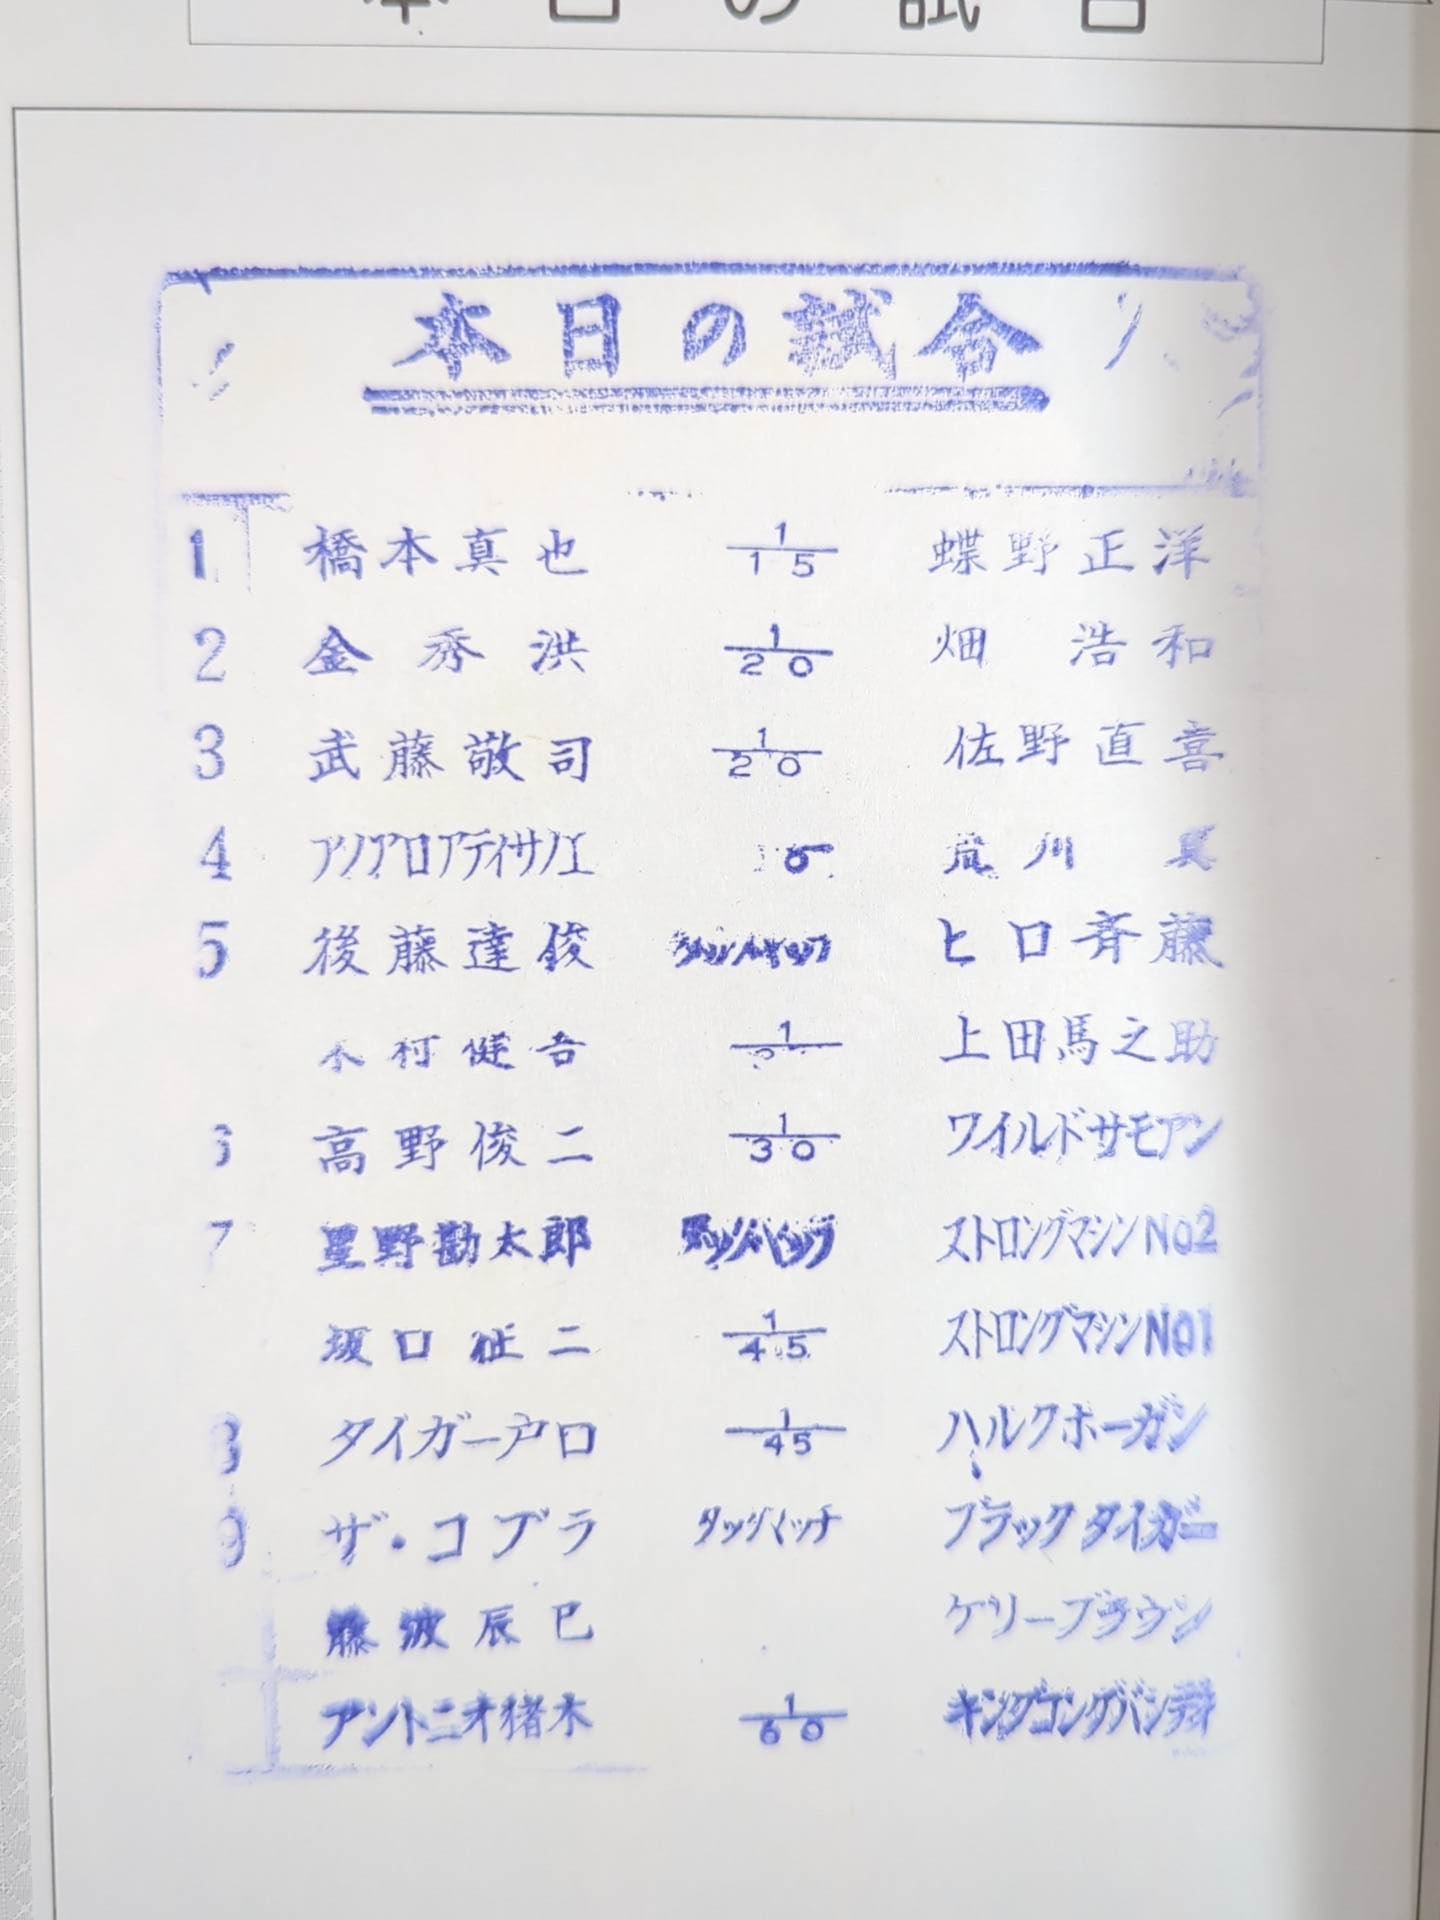 本日の試合
本日の試合
1 橋本真也 1/15 蝶野正洋
2 金秀洪 1/20 畑浩和
3 武藤敬司 1/20 佐野直喜
4 荒川真
5 後藤達俊 タッグマッチ ヒロ斉藤
木村健吾 1 上田馬之助
6 高野俊二 1/30 ワイルドサモアン
7 星野勘太郎 タッグマッチ ストロングマシンNo2
坂口征二 1/45 ストロングマシンNO1
8 タイガー戸口 1/45 ハルクホーガン
9 ザ・コブラ タッグマッチ ブラックタイガー
藤波辰巳 ケリーブラウン
アントニオ猪木 1/60 キングコングバンディ